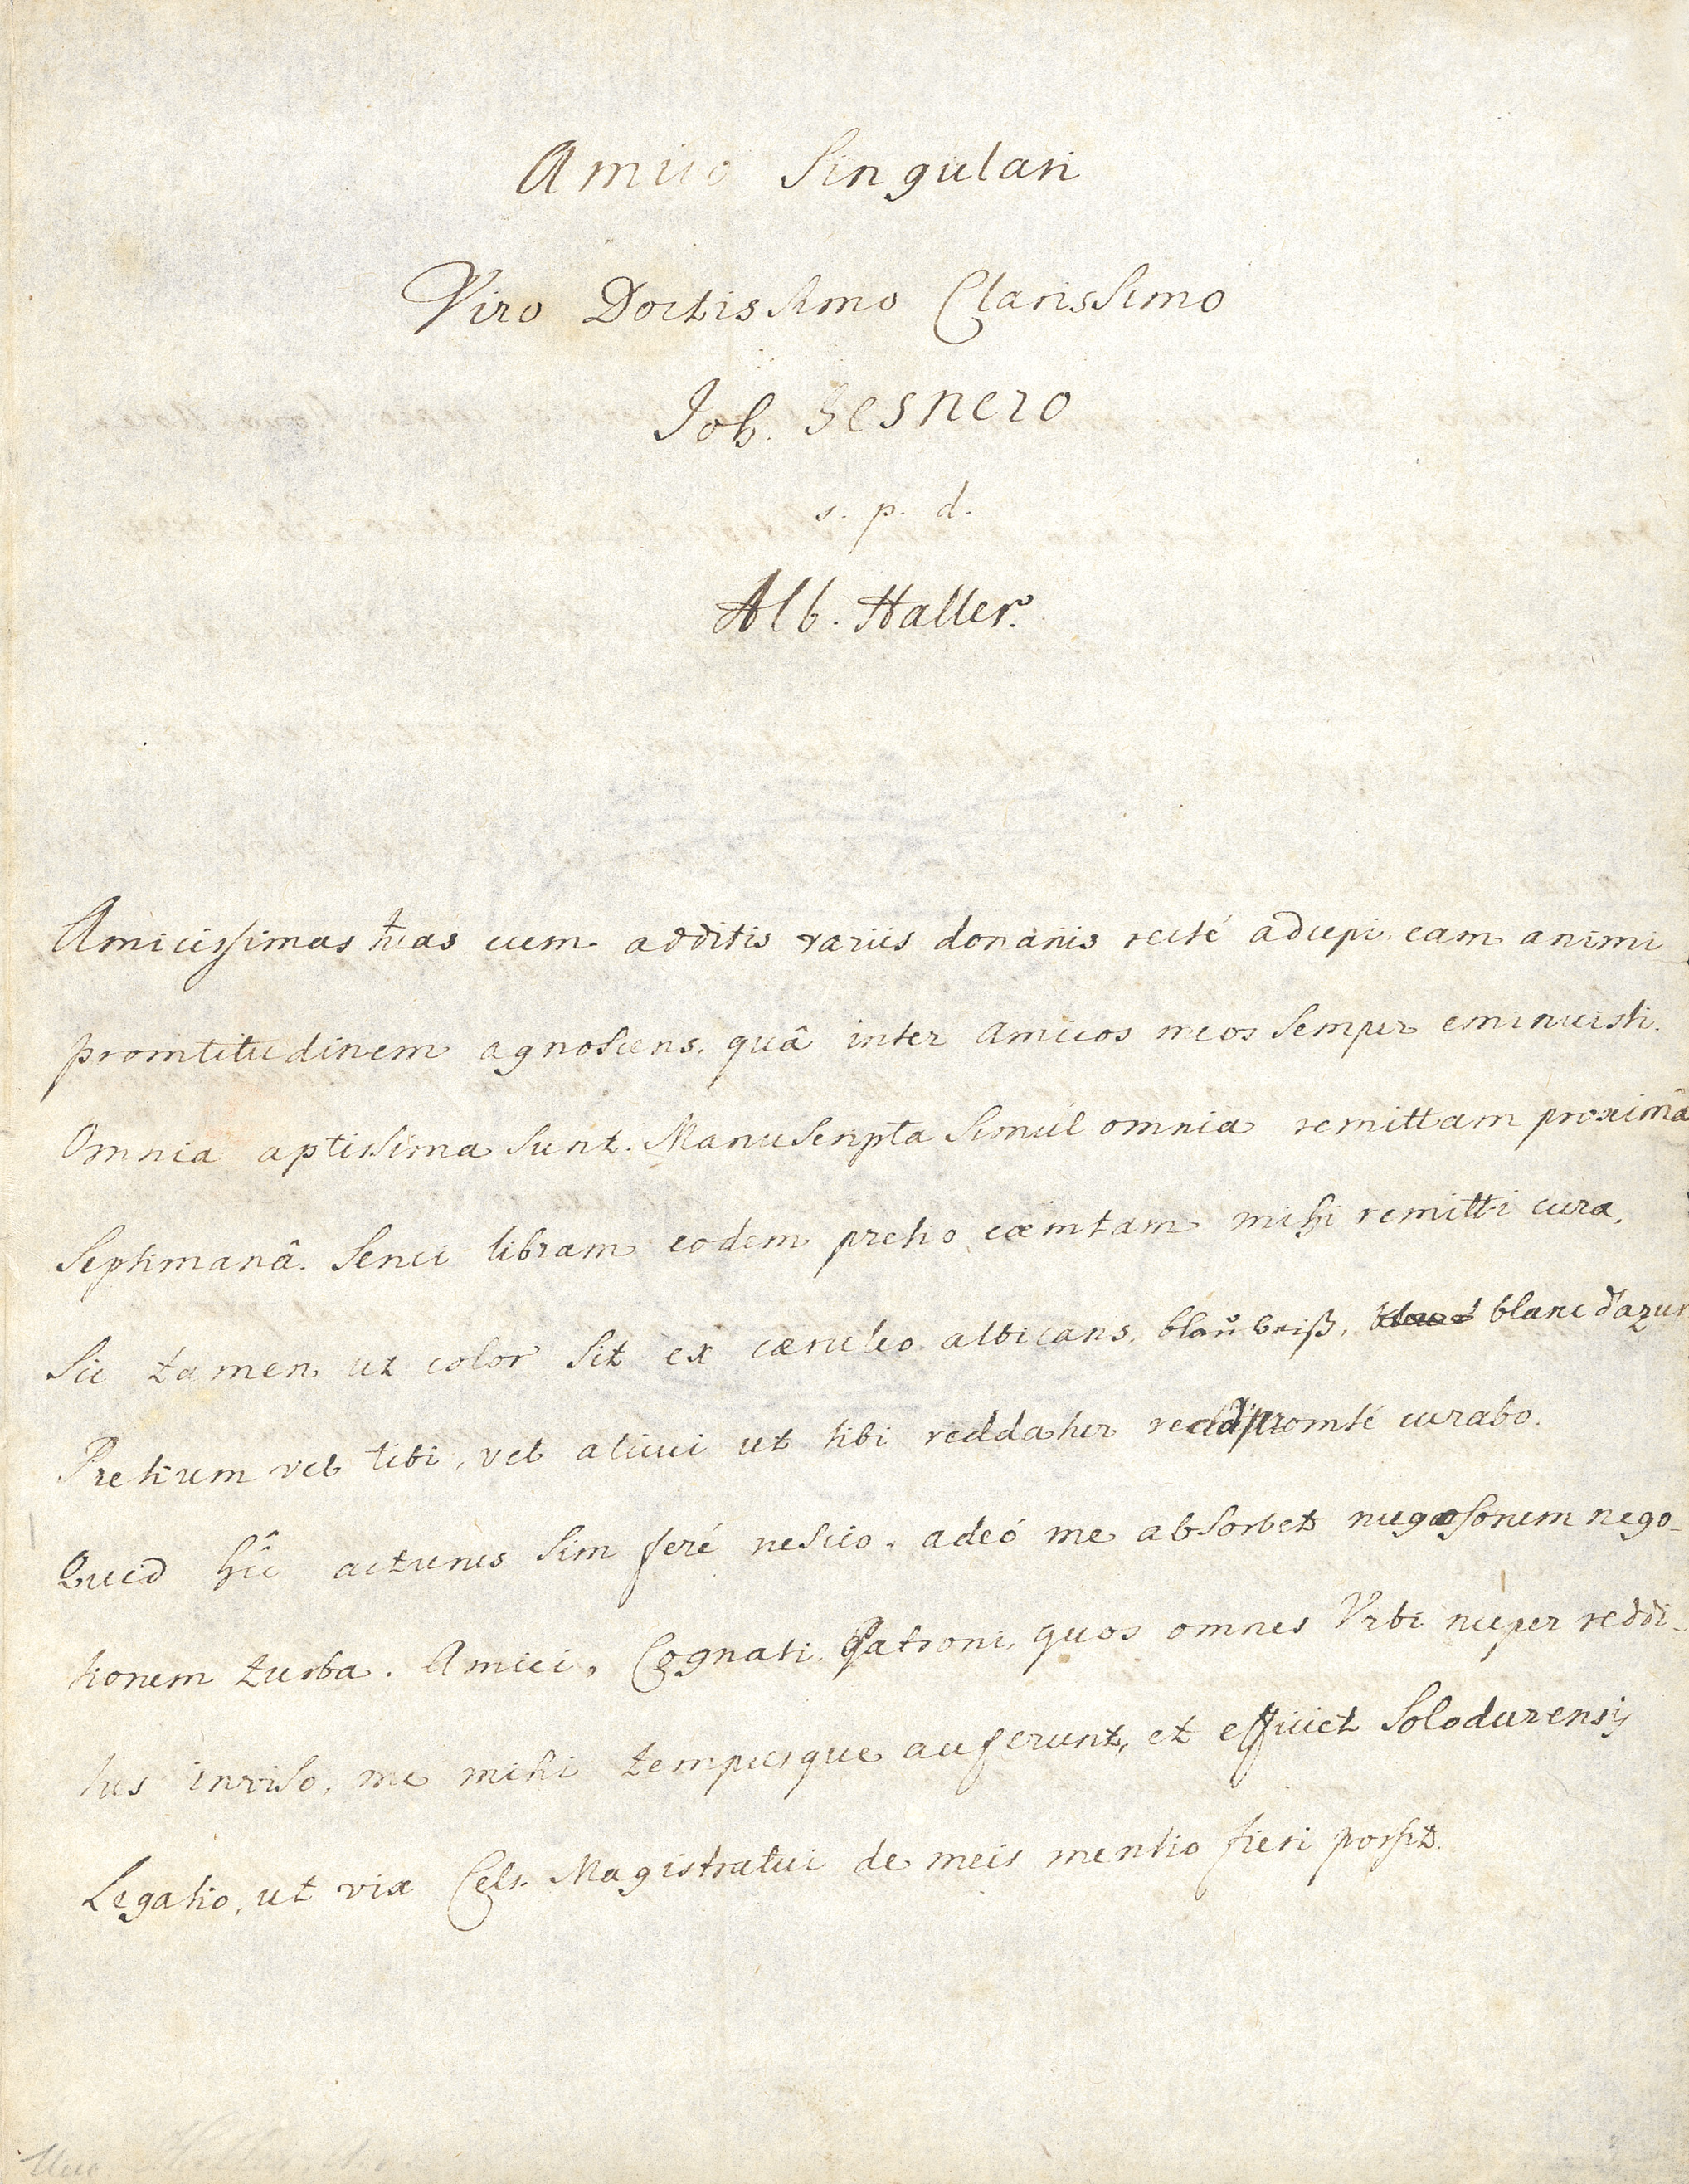 Amico Singulari
Viro Doctissimo Clarissimo
Joh. Gesnero
s. p. d.
Alb. Haller.
Amicissimas tuas cum additis variis donariis recté adcepi, eam animi
promtitudinem agnoscens, quâ inter Amicos meos semper eminuisti.
Omnia aptissima sunt. Manuscripta simul omnia remittam proximâ
Septimanâ. Serici libram eodem pretio coemtam mihi remitti cura,
sic tamen ut color sit ex caeruleo albicans, blauweiß, blanc d'azur
Pretium vel tibi, vel alicui ut tibi reddatur promté curabo.
Quid hîc acturus sim feré nescio, adeó me absorbet nugosorum nego-
tiorum turba. Amici, Cognati, Patroni, quos omnes Urbi nuper reddi-
tus inviso, me mihi tempusque auferunt, et efficiet Solodurensis
Legatio, ut vix Cels. Magistratui de meis mentio fieri possit.